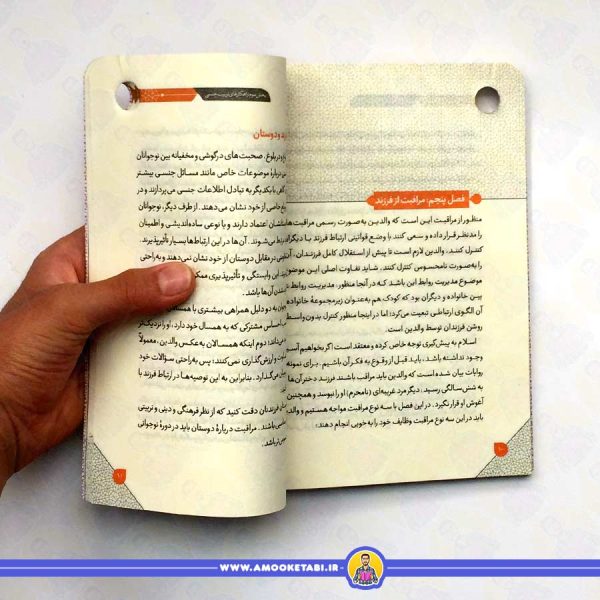 فصل پنجم: مراقبت از فرزند
منظور از مراقبت این است که والدین به‌صورت رسمی مراقبت‌ها
را مدنظر قرار داده و سعی کنند با وضع قوانینی ارتباط فرزند با دیگران
کنترل کنند. والدین لازم است تا پیش از استقلال کامل فرزندان، آن
را به‌صورت نامحسوس کنترل کنند. شاید تفاوت اصلی این موضوع
موضوع مدیریت روابط این باشد که در آنجا منظور، مدیریت روابط
بین خانواده و دیگران بود که کودک هم به‌عنوان زیرمجموعهٔ خانواده
آن الگوی ارتباطی تبعیت می‌کرد؛ اما در اینجا منظور کنترل بدون واسطه
روشن فرزندان توسط والدین است.
اسلام به پیش‌گیری توجه خاص کرده و معتقد است اگر بخواهیم آسیب
وجود نداشته باشد، باید قبل از وقوع به فکر آن باشیم. برای نمونه
روایات بیان شده است که والدین باید مراقب باشند فرزند دختر آن‌ها
به شش سالگی رسید، دیگر مرد غریبه‌ای (نامحرم) او را نبوسد و همچنین
آغوش او قرار نگیرد. در این فصل با سه نوع مراقبت مواجه هستیم و والدین
باید در این سه نوع مراقبت وظایف خود را به خوبی انجام دهند:
بخش سوم: راهکارهای تربیت جنسی
و دوستان
بلوغ، صحبت‌های درگوشی و مخفیانه بین نوجوانان
دربارهٔ موضوعات خاص مانند مسائل جنسی بیشتر
با یکدیگر به تبادل اطلاعات جنسی می‌پردازند و در
خاصی از خود نشان می‌دهند. از طرف دیگر، نوجوانان
اعتماد دارند و با نوعی ساده‌اندیشی و اطمینان
می‌شوند. آن‌ها در این ارتباط‌ها بسیار تأثیرپذیرند.
در مقابل دوستان از خود نشان نمی‌دهند و به راحتی
این وابستگی و تأثیرپذیری ممکن
آن‌ها باشد.
به دو دلیل همراهی بیشتری با همسالان
احساس مشترکی که به همسال خود دارد، او را نزدیک‌تر
دوم اینکه همسالان به‌عکس والدین، معمولاً
و ارزش‌گذاری نمی‌کنند؛ پس به‌راحتی سؤالات خود
می‌گذارد. بنابراین به این توصیه‌ها در ارتباط فرزند با
فرزندان دقت کنید که از نظر فرهنگی و دینی و تربیتی
باشند. مراقبت دربارهٔ دوستان باید در دورهٔ نوجوانی
باشد.
WWW.AMOOKETABI.IR